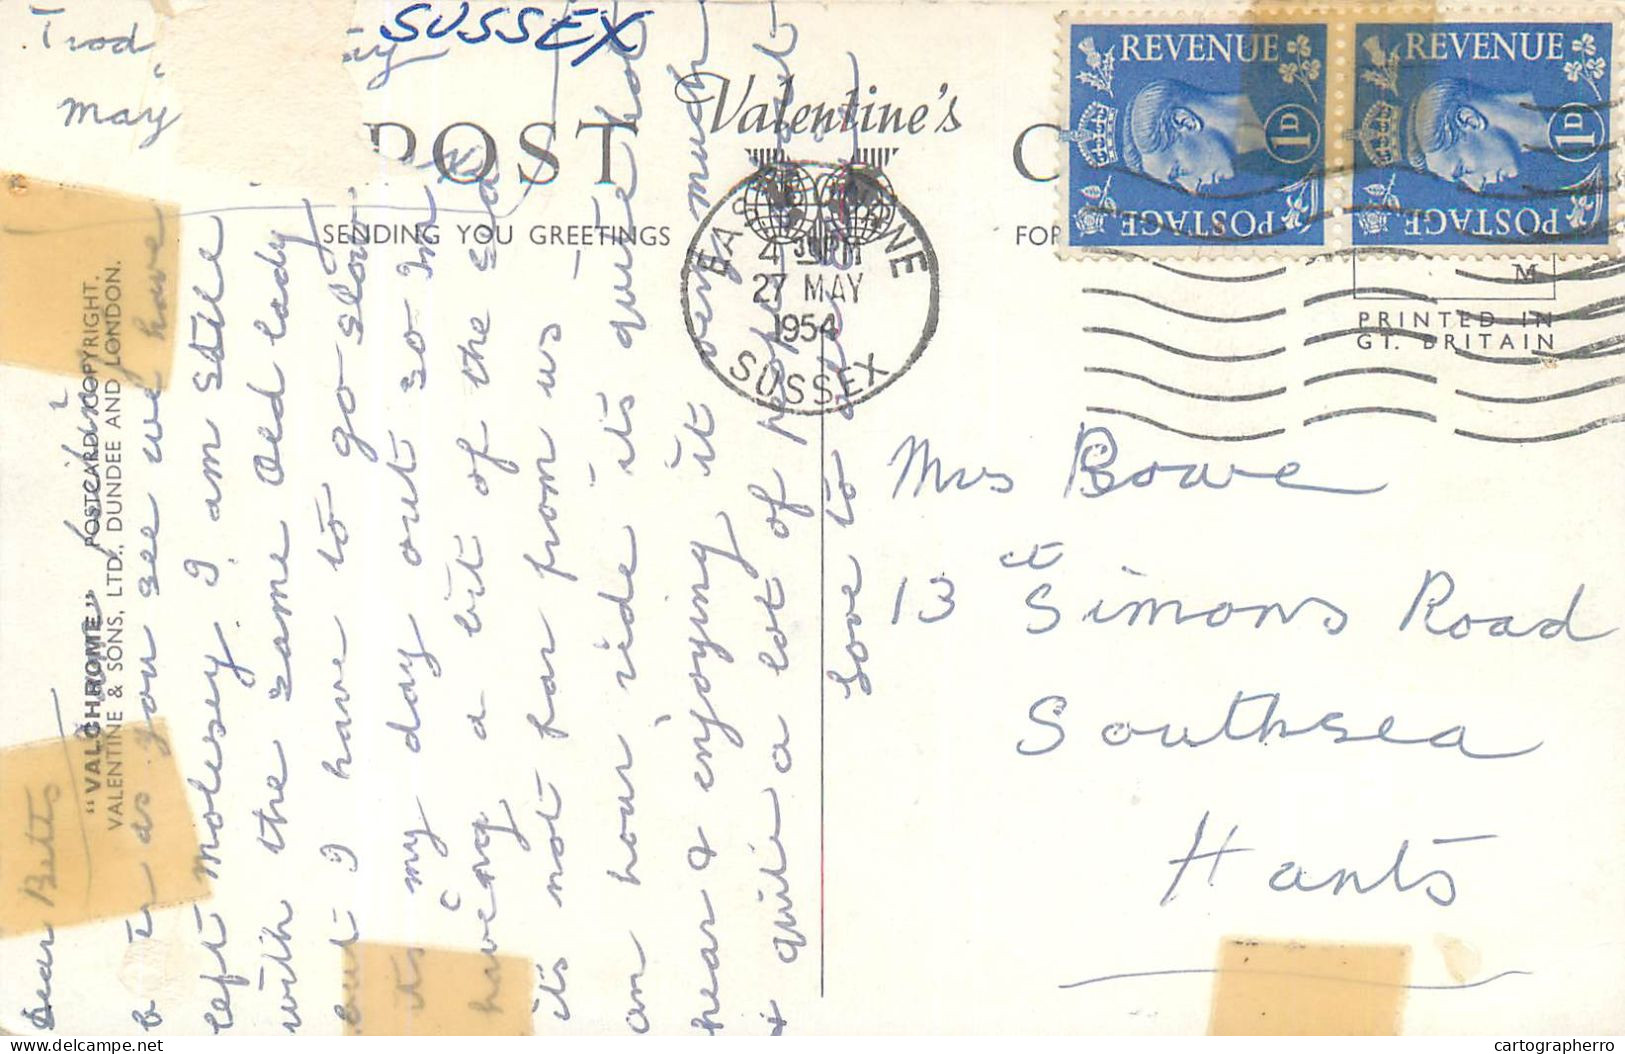 SUSSEX
May
POST
Valentine's
SENDING YOU GREETINGS
FOR
REVENUE
1D
POSTAGE
REVENUE
1D
POSTAGE
4 PM
27 MAY
1954
SUSSEX
M
PRINTED IN
GT. BRITAIN
"VALCHROME" POSTCARD COPYRIGHT.
VALENTINE & SONS, LTD., DUNDEE AND LONDON.
Dear Betts
as you see we have
left Molesey. I am still
with the same old lady
but I have to go slow
its my day out so In
having a bit of the sea
its not far from us -
an hour ride its quite hot
hear & enjoying it very much
& quite a lot of people
love to
Mrs Bowe
13 St Simons Road
Southsea
Hants
cartographerro
delcampe.net